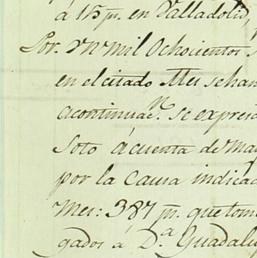 á 15 p.s en Valladolid,
Por. un mil Ochocientos
en el citado Mes se han
acontinuac.n se expres
Soto á cuenta de Ma
por la Causa indica
Mes: 387 p.s que tom
gados á D.a Guadalu